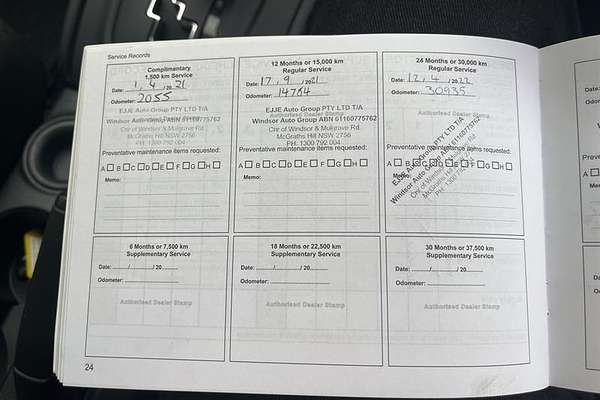 Service Records
Complimentary
1,500 km Service
Date: 1 / 4 / 20 21
Odometer: 2055
EJJE Auto Group PTY LTD T/A
Authorised Dealer Stamp
Windsor Auto Group ABN 61160775762
Cnr of Windsor & Mulgrave Rd
McGraths Hill NSW 2756
PH: 1300 792 004
Preventative maintenance items requested:
A B C D E F G H
Memo:
12 Months or 15,000 km
Regular Service
Date: 17 / 9 / 2021
Odometer: 14764
EJJE Auto Group PTY LTD T/A
Authorised Dealer Stamp
Windsor Auto Group ABN 61160775762
Cnr of Windsor & Mulgrave Rd
McGraths Hill NSW 2756
PH: 1300 792 004
Preventative maintenance items requested:
A B C D E F G H
Memo:
24 Months or 30,000 km
Regular Service
Date: 12 / 4 / 2022
Odometer: 30935
Authorised Dealer Stamp
EJJE Auto Group PTY LTD T/A
Windsor Auto Group ABN 61160775762
Cnr of Windsor & Mulgrave Rd
McGraths Hill NSW 2756
PH: 1300 792 004
Preventative maintenance items requested:
A B C D E F G H
Memo:
6 Months or 7,500 km
Supplementary Service
Date: / / 20
Odometer:
Authorised Dealer Stamp
18 Months or 22,500 km
Supplementary Service
Date: / / 20
Odometer:
Authorised Dealer Stamp
30 Months or 37,500 km
Supplementary Service
Date: / / 20
Odometer:
Authorised Dealer Stamp
24